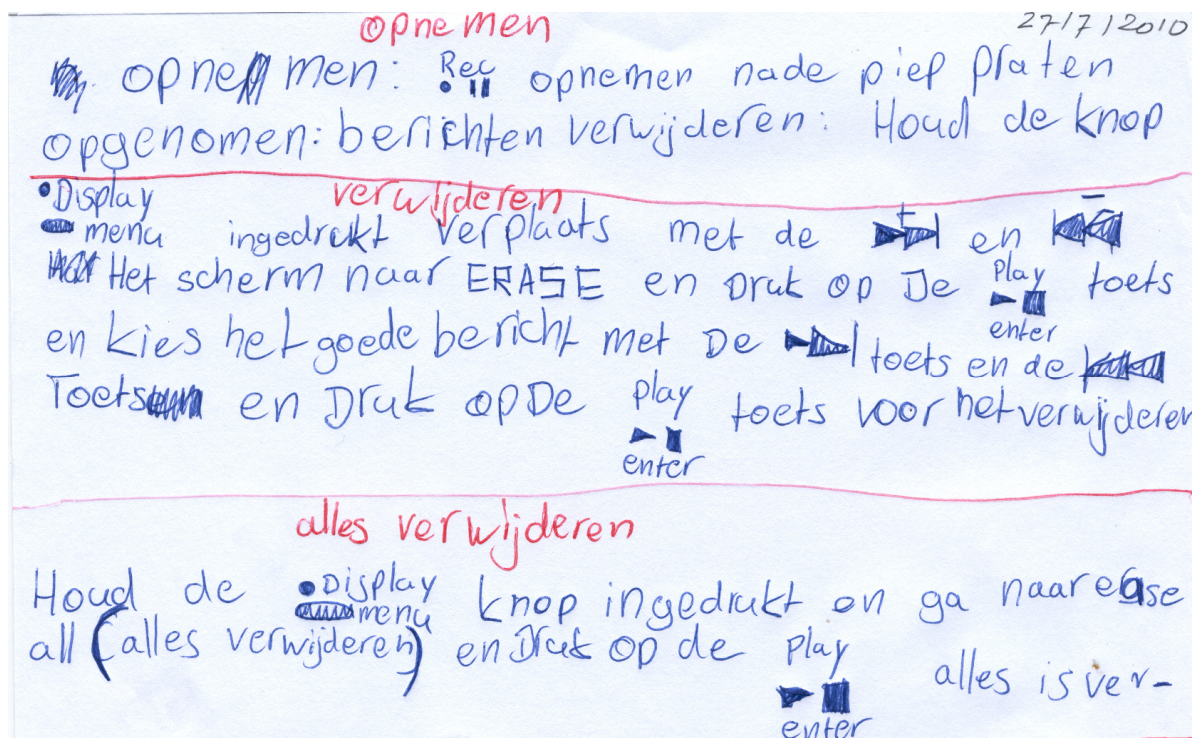 opnemen 27/7/2010
opnemen: Rec ● ▮▮ opnemen nade piep praten
opgenomen: berichten verwijderen: Houd de knop
verwijderen
Display
menu ingedrukt verplaats met de ▶▶| + en |◀◀ –
Het scherm naar ERASE en Druk op De play ▶■ enter toets
en kies het goede bericht met De ▶▶| toets en de |◀◀
Toets en Druk op De play ▶■ enter toets voor het verwijderen
alles verwijderen
Houd de Display menu knop ingedrukt en ga naar erase
all (alles verwijderen) en Druk op de play ▶■ enter alles is ver-